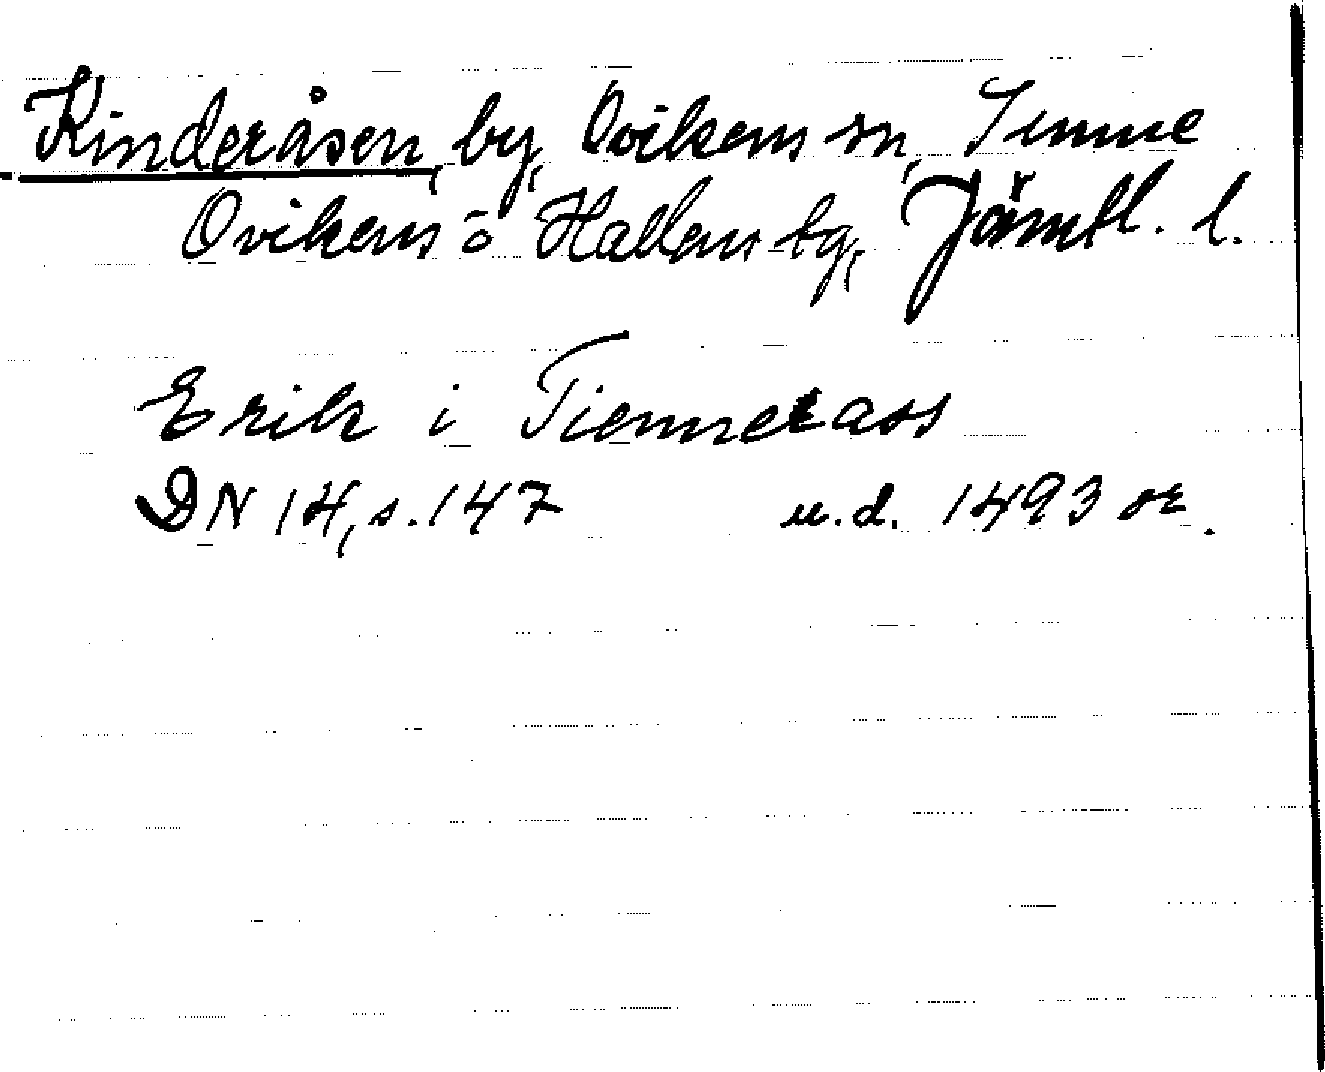 Kinderåsen, by, Ovikens sn, Sunne
Ovikens o Hallens tg, Jämtl. l.
Erik i Tiennerass
DN 14, s. 147 u.d. 1493 or.